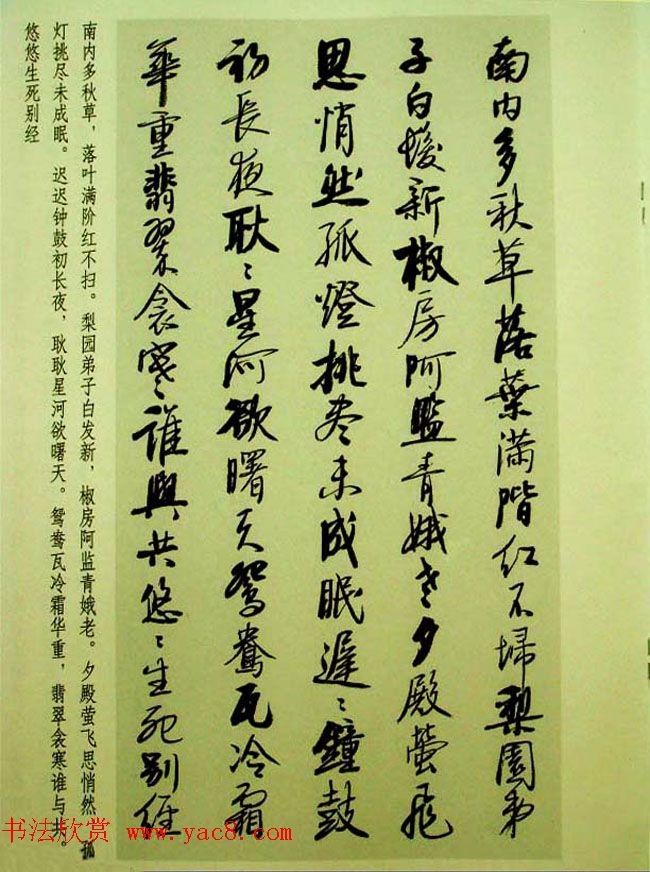 南内多秋草落葉满階红不埽梨園弟
子白髪新椒房阿監青娥老夕殿萤飛
思悄然孤燈挑尽未成眠遲〻鐘鼓
初長夜耿〻星河欲曙天鴛鴦瓦冷霜
華重翡翠衾寒誰與共悠〻生死别经
南内多秋草，落叶满阶红不扫。梨园弟子白发新，椒房阿监青娥老。夕殿萤飞思悄然，孤
灯挑尽未成眠。迟迟钟鼓初长夜，耿耿星河欲曙天。鸳鸯瓦冷霜华重，翡翠衾寒谁与共。
悠悠生死别经
书法欣赏
www.yac8.com